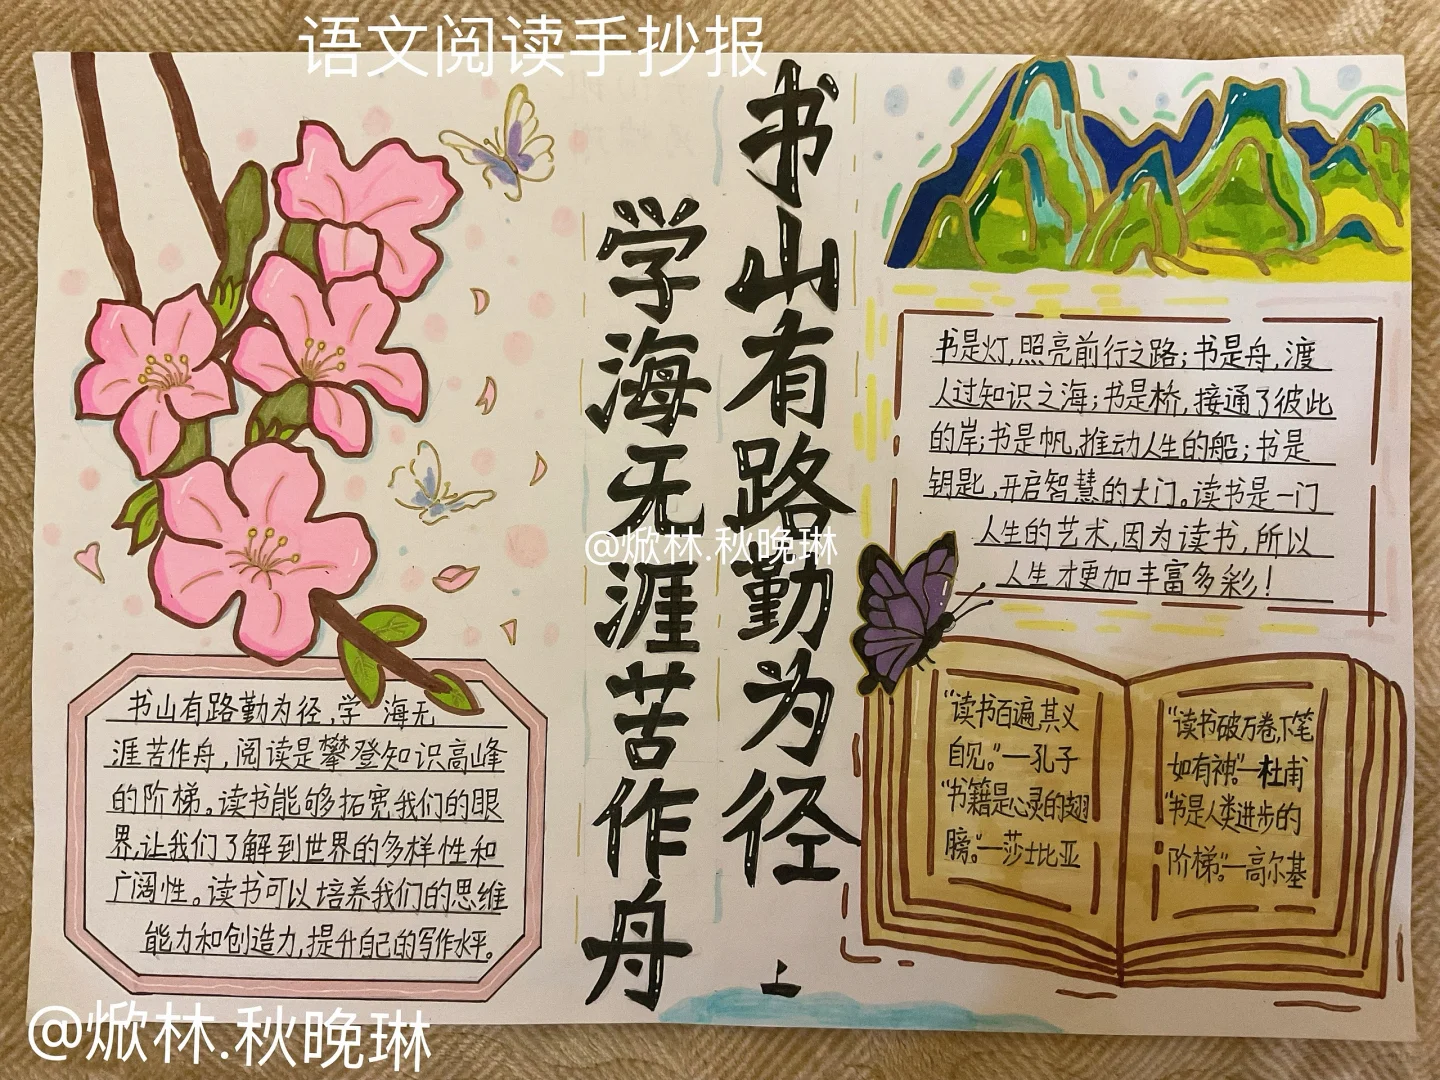 语文阅读手抄报
书山有路勤为径
学海无涯苦作舟
@焮林.秋晚琳
书是灯,照亮前行之路;书是舟,渡
人过知识之海;书是桥,接通了彼此
的岸;书是帆,推动人生的船;书是
钥匙,开启智慧的大门。读书是一门
人生的艺术,因为读书,所以
人生才更加丰富多彩!
书山有路勤为径,学 海无
涯苦作舟,阅读是攀登知识高峰
的阶梯。读书能够拓宽我们的眼
界,让我们了解到世界的多样性和
广阔性。读书可以培养我们的思维
能力和创造力,提升自己的写作水平。
“读书百遍,其义
自见。”—孔子
“书籍是心灵的翅
膀。”—莎士比亚
“读书破万卷,下笔
如有神。”—杜甫
“书是人类进步的
阶梯。”—高尔基
@焮林.秋晚琳